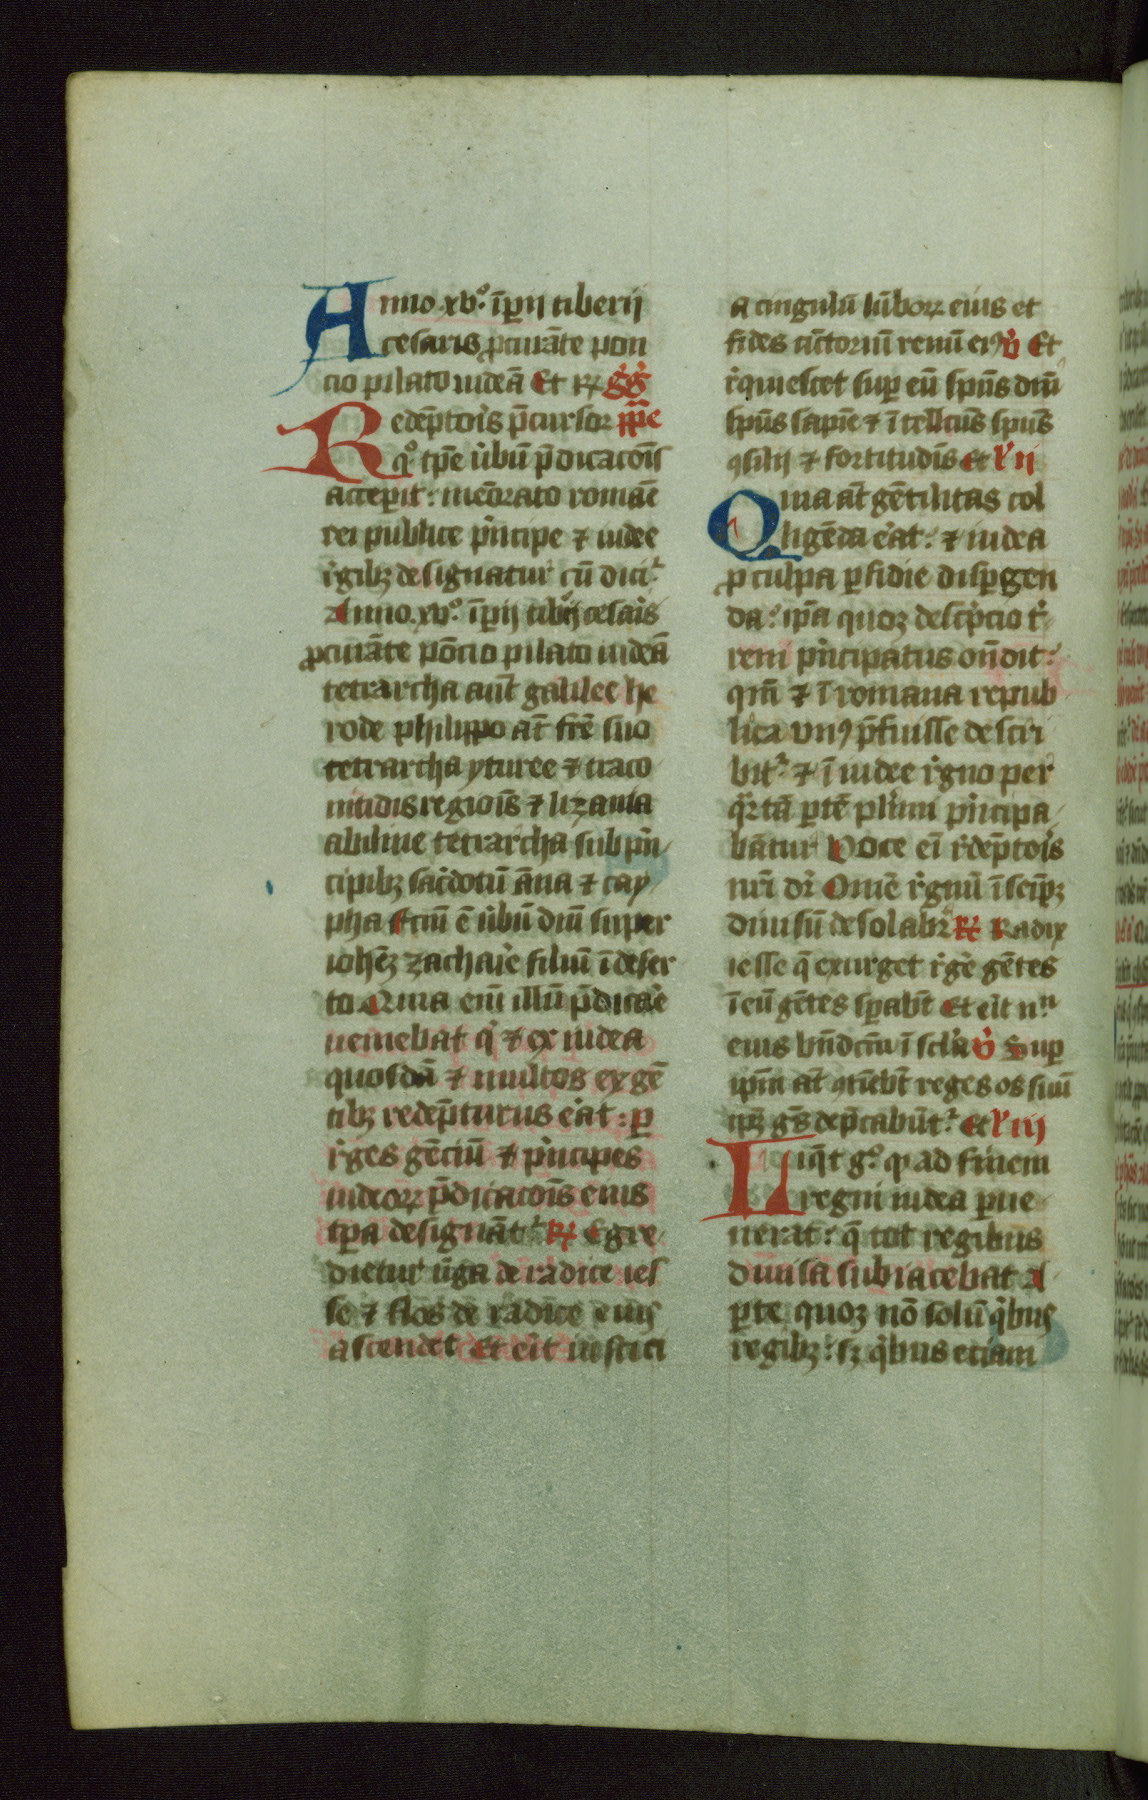 Anno .xv°. īperij tiberij
cesaris p̱curāte pon
cio pilato iudeā Et rꝭ gͥgͥ
Redēptoris p̄cursor
qͦ tp̄e ūbū p̄dicacoīs
accepit: meōrato romāe
rei publice pͥncipe ⁊ iudee
rͥgibꝫ designatur cū diciꝉ
Anno .xv°. īperij tibͥij cesaris
ꝓcurāte pōcio pilato iudeā
tetrarcha aūt galilee he
rode philippo āt frē suo
tetrarcha yturee ⁊ traco
nitidis regiois̄ ⁊ lizania
abiline tetrarcha sub pͥn
cipibꝫ sac̄dotū āna ⁊ cay
pha Fc̄m ē ūbū dn̄i super
iohēꝫ zacharie filiū ī deser
to Quia eni illū p̄dicare
ueniebat qͥ ⁊ ex iudea
quosdā ⁊ multos ex gē
tibꝫ redēpturus erat: ꝑ
rͥges gēciū ⁊ pͥncipes
iudeoꝝ p̄dicacois̄ eius
tp̄a designāt᷑ ꝶ Egre
dietur ūga de radice ies
se ⁊ flos de radice eius
ascendet Et erit iustici
a cingulū lūboꝝ eius et
fides cīctoriū renū eiꝰ ꝟ Et
rͥquiescet suꝑ eū sp̄us dn̄i
sp̄us sapīe ⁊ ītellcūs sp̄us
ꝯsilij ⁊ fortitudis̄ et lͥ ij
Quia āt gētilitas col
ligēda erat: ⁊ iudea
ꝓ culpa ꝑfidie disꝑgen
da: ip̄a quoꝫ descͥpcio tͥ
reni pͥncipatus on̄dit:
qm̄ ⁊ ī romana repub
lica vnꝰ p̄fuisse descri
bit᷑ ⁊ ī iudee rͥgno per
qͣrtā ꝑtē plͥimi pͥncipa
bātur Voce eī rͥdēptoris
nr̄i dr̄ Omē rͥgnū ī seip̄ꝫ
diuisū desolabr̄ ꝶ Radix
iesse q̄ exurget rͥgere gētes
ī eū gētes sꝑabūt Et erit nⁿ
eius bn̄dcm̄ ī scl̄a ꝟ Suꝑ
ip̄m āt ꝯtīebt reges os suū
ip̄ꝫ gs̄ dep̄cabūt᷑ et lͥ iij
Liqͥt gͦ ꝙ ad finem
regni iudea ꝑue
nerat: q̄ tot regibus
diuisa subiacebat A
ꝑte quoꝫ nō solū qͥbus
regibꝫ: sꝫ qͥbus etiam